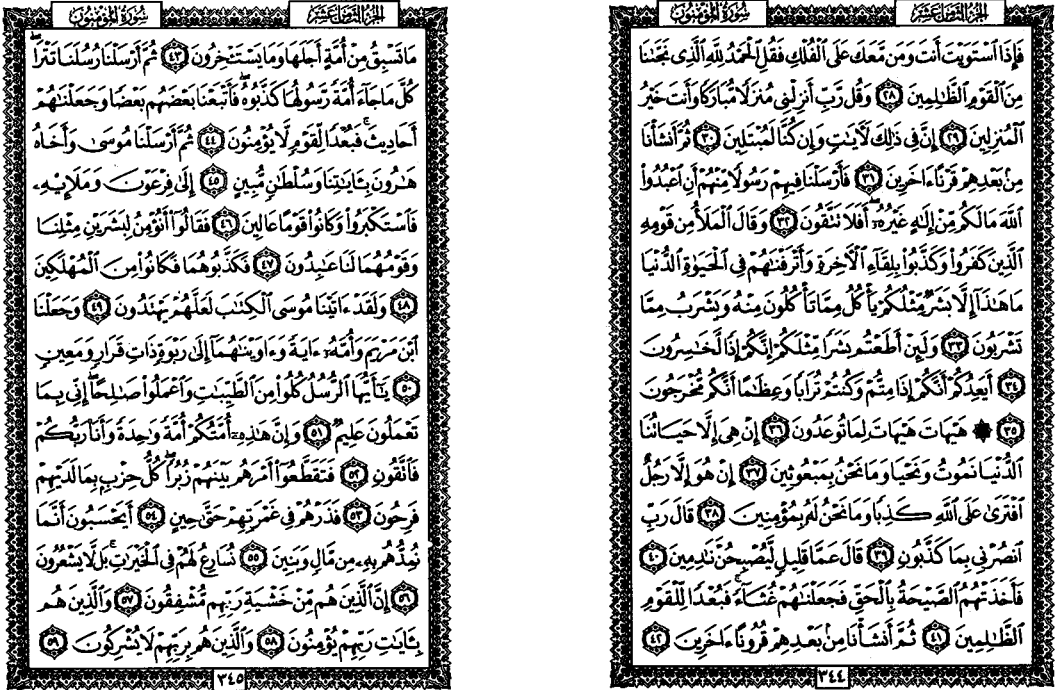 الجزء الثامن عشر
سورة المؤمنون
فَإِذَا ٱسْتَوَيْتَ أَنتَ وَمَن مَّعَكَ عَلَى ٱلْفُلْكِ فَقُلِ ٱلْحَمْدُ لِلَّهِ ٱلَّذِى نَجَّىٰنَا
مِنَ ٱلْقَوْمِ ٱلظَّٰلِمِينَ ٢٨ وَقُل رَّبِّ أَنزِلْنِى مُنزَلًا مُّبَارَكًا وَأَنتَ خَيْرُ
ٱلْمُنزِلِينَ ٢٩ إِنَّ فِى ذَٰلِكَ لَءَايَٰتٍ وَإِن كُنَّا لَمُبْتَلِينَ ٣٠ ثُمَّ أَنشَأْنَا
مِنۢ بَعْدِهِمْ قَرْنًا ءَاخَرِينَ ٣١ فَأَرْسَلْنَا فِيهِمْ رَسُولًا مِّنْهُمْ أَنِ ٱعْبُدُوا۟
ٱللَّهَ مَا لَكُم مِّنْ إِلَٰهٍ غَيْرُهُۥٓ أَفَلَا تَتَّقُونَ ٣٢ وَقَالَ ٱلْمَلَأُ مِن قَوْمِهِ
ٱلَّذِينَ كَفَرُوا۟ وَكَذَّبُوا۟ بِلِقَآءِ ٱلْءَاخِرَةِ وَأَتْرَفْنَٰهُمْ فِى ٱلْحَيَوٰةِ ٱلدُّنْيَا
مَا هَٰذَآ إِلَّا بَشَرٌ مِّثْلُكُمْ يَأْكُلُ مِمَّا تَأْكُلُونَ مِنْهُ وَيَشْرَبُ مِمَّا
تَشْرَبُونَ ٣٣ وَلَئِنْ أَطَعْتُم بَشَرًا مِّثْلَكُمْ إِنَّكُمْ إِذًا لَّخَٰسِرُونَ
٣٤ أَيَعِدُكُمْ أَنَّكُمْ إِذَا مِتُّمْ وَكُنتُمْ تُرَابًا وَعِظَٰمًا أَنَّكُم مُّخْرَجُونَ
٣٥ ۞ هَيْهَاتَ هَيْهَاتَ لِمَا تُوعَدُونَ ٣٦ إِنْ هِىَ إِلَّا حَيَاتُنَا
ٱلدُّنْيَا نَمُوتُ وَنَحْيَا وَمَا نَحْنُ بِمَبْعُوثِينَ ٣٧ إِنْ هُوَ إِلَّا رَجُلٌ
ٱفْتَرَىٰ عَلَى ٱللَّهِ كَذِبًا وَمَا نَحْنُ لَهُۥ بِمُؤْمِنِينَ ٣٨ قَالَ رَبِّ
ٱنصُرْنِى بِمَا كَذَّبُونِ ٣٩ قَالَ عَمَّا قَلِيلٍ لَّيُصْبِحُنَّ نَٰدِمِينَ ٤٠
فَأَخَذَتْهُمُ ٱلصَّيْحَةُ بِٱلْحَقِّ فَجَعَلْنَٰهُمْ غُثَآءً فَبُعْدًا لِّلْقَوْمِ
ٱلظَّٰلِمِينَ ٤١ ثُمَّ أَنشَأْنَا مِنۢ بَعْدِهِمْ قُرُونًا ءَاخَرِينَ ٤٢
٣٤٤
الجزء الثامن عشر
سورة المؤمنون
مَا تَسْبِقُ مِنْ أُمَّةٍ أَجَلَهَا وَمَا يَسْتَـْٔخِرُونَ ٤٣ ثُمَّ أَرْسَلْنَا رُسُلَنَا تَتْرَا
كُلَّ مَا جَآءَ أُمَّةً رَّسُولُهَا كَذَّبُوهُ فَأَتْبَعْنَا بَعْضَهُم بَعْضًا وَجَعَلْنَٰهُمْ
أَحَادِيثَ فَبُعْدًا لِّقَوْمٍ لَّا يُؤْمِنُونَ ٤٤ ثُمَّ أَرْسَلْنَا مُوسَىٰ وَأَخَاهُ
هَٰرُونَ بِـَٔايَٰتِنَا وَسُلْطَٰنٍ مُّبِينٍ ٤٥ إِلَىٰ فِرْعَوْنَ وَمَلَإِي۟هِۦ
فَٱسْتَكْبَرُوا۟ وَكَانُوا۟ قَوْمًا عَالِينَ ٤٦ فَقَالُوٓا۟ أَنُؤْمِنُ لِبَشَرَيْنِ مِثْلِنَا
وَقَوْمُهُمَا لَنَا عَٰبِدُونَ ٤٧ فَكَذَّبُوهُمَا فَكَانُوا۟ مِنَ ٱلْمُهْلَكِينَ
٤٨ وَلَقَدْ ءَاتَيْنَا مُوسَى ٱلْكِتَٰبَ لَعَلَّهُمْ يَهْتَدُونَ ٤٩ وَجَعَلْنَا
ٱبْنَ مَرْيَمَ وَأُمَّهُۥٓ ءَايَةً وَءَاوَيْنَٰهُمَآ إِلَىٰ رَبْوَةٍ ذَاتِ قَرَارٍ وَمَعِينٍ
٥٠ يَٰٓأَيُّهَا ٱلرُّسُلُ كُلُوا۟ مِنَ ٱلطَّيِّبَٰتِ وَٱعْمَلُوا۟ صَٰلِحًا إِنِّى بِمَا
تَعْمَلُونَ عَلِيمٌ ٥١ وَإِنَّ هَٰذِهِۦٓ أُمَّتُكُمْ أُمَّةً وَٰحِدَةً وَأَنَا۠ رَبُّكُمْ
فَٱتَّقُونِ ٥٢ فَتَقَطَّعُوٓا۟ أَمْرَهُم بَيْنَهُمْ زُبُرًا كُلُّ حِزْبٍۭ بِمَا لَدَيْهِمْ
فَرِحُونَ ٥٣ فَذَرْهُمْ فِى غَمْرَتِهِمْ حَتَّىٰ حِينٍ ٥٤ أَيَحْسَبُونَ أَنَّمَا
نُمِدُّهُم بِهِۦ مِن مَّالٍ وَبَنِينَ ٥٥ نُسَارِعُ لَهُمْ فِى ٱلْخَيْرَٰتِ بَل لَّا يَشْعُرُونَ
٥٦ إِنَّ ٱلَّذِينَ هُم مِّنْ خَشْيَةِ رَبِّهِم مُّشْفِقُونَ ٥٧ وَٱلَّذِينَ هُم
بِـَٔايَٰتِ رَبِّهِمْ يُؤْمِنُونَ ٥٨ وَٱلَّذِينَ هُم بِرَبِّهِمْ لَا يُشْرِكُونَ ٥٩
٣٤٥